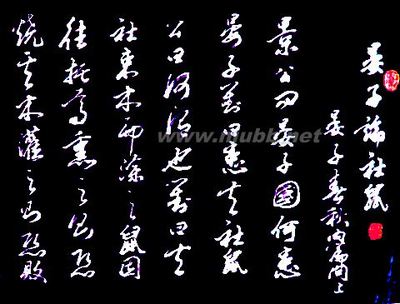 晏子論社鼠
晏子春秋内篇問上
景公問晏子國何患
晏子對曰患夫社鼠
公曰何謂也對曰夫
社束木而塗之鼠因
往托焉熏之則恐
燒其木灌之則恐敗